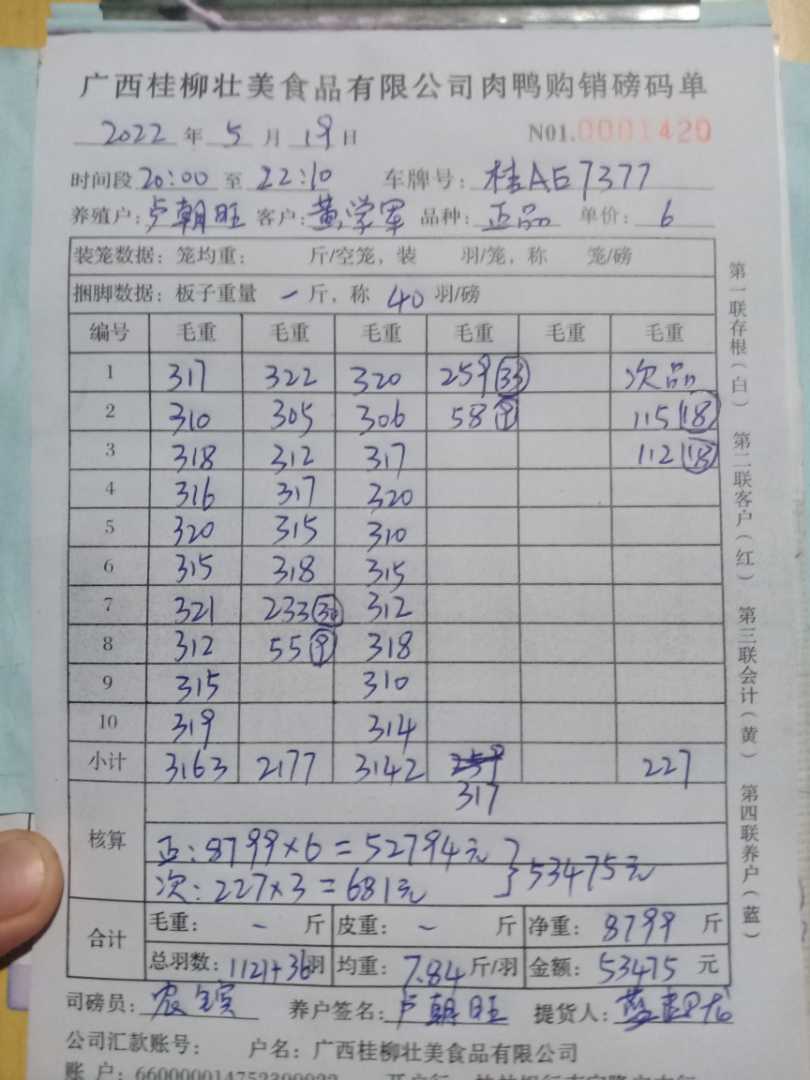 广西桂柳壮美食品有限公司肉鸭购销磅码单
2022 年 5 月 19 日 N01.0001420
时间段 20:00 至 22:10 车牌号: 桂AE7377
养殖户: 卢朝旺 客户: 黄学军 品种: 正品 单价: 6
装笼数据: 笼均重: 斤/空笼, 装 羽/笼, 称 笼/磅
捆脚数据: 板子重量 - 斤, 称 40 羽/磅
编号 毛重 毛重 毛重 毛重 毛重 毛重
1 317 322 320 259 33 次品
2 310 305 306 58 9 115 18
3 318 312 317 112 18
4 316 317 320
5 320 315 310
6 315 318 315
7 321 233 30 312
8 312 55 9 318
9 315 310
10 319 314
小计 3163 2177 3142 259 227
317
核算
正: 8799×6=52794元
次: 227×3=681元 }53475元
合计
毛重: - 斤 皮重: - 斤 净重: 8799 斤
总羽数: 1121+36羽 均重: 7.84 斤/羽 金额: 53475 元
司磅员: 养户签名: 卢朝旺 提货人:
公司汇款账号: 户名: 广西桂柳壮美食品有限公司
账 户:
第一联存根(白) 第二联客户(红) 第三联会计(黄) 第四联养户(蓝)